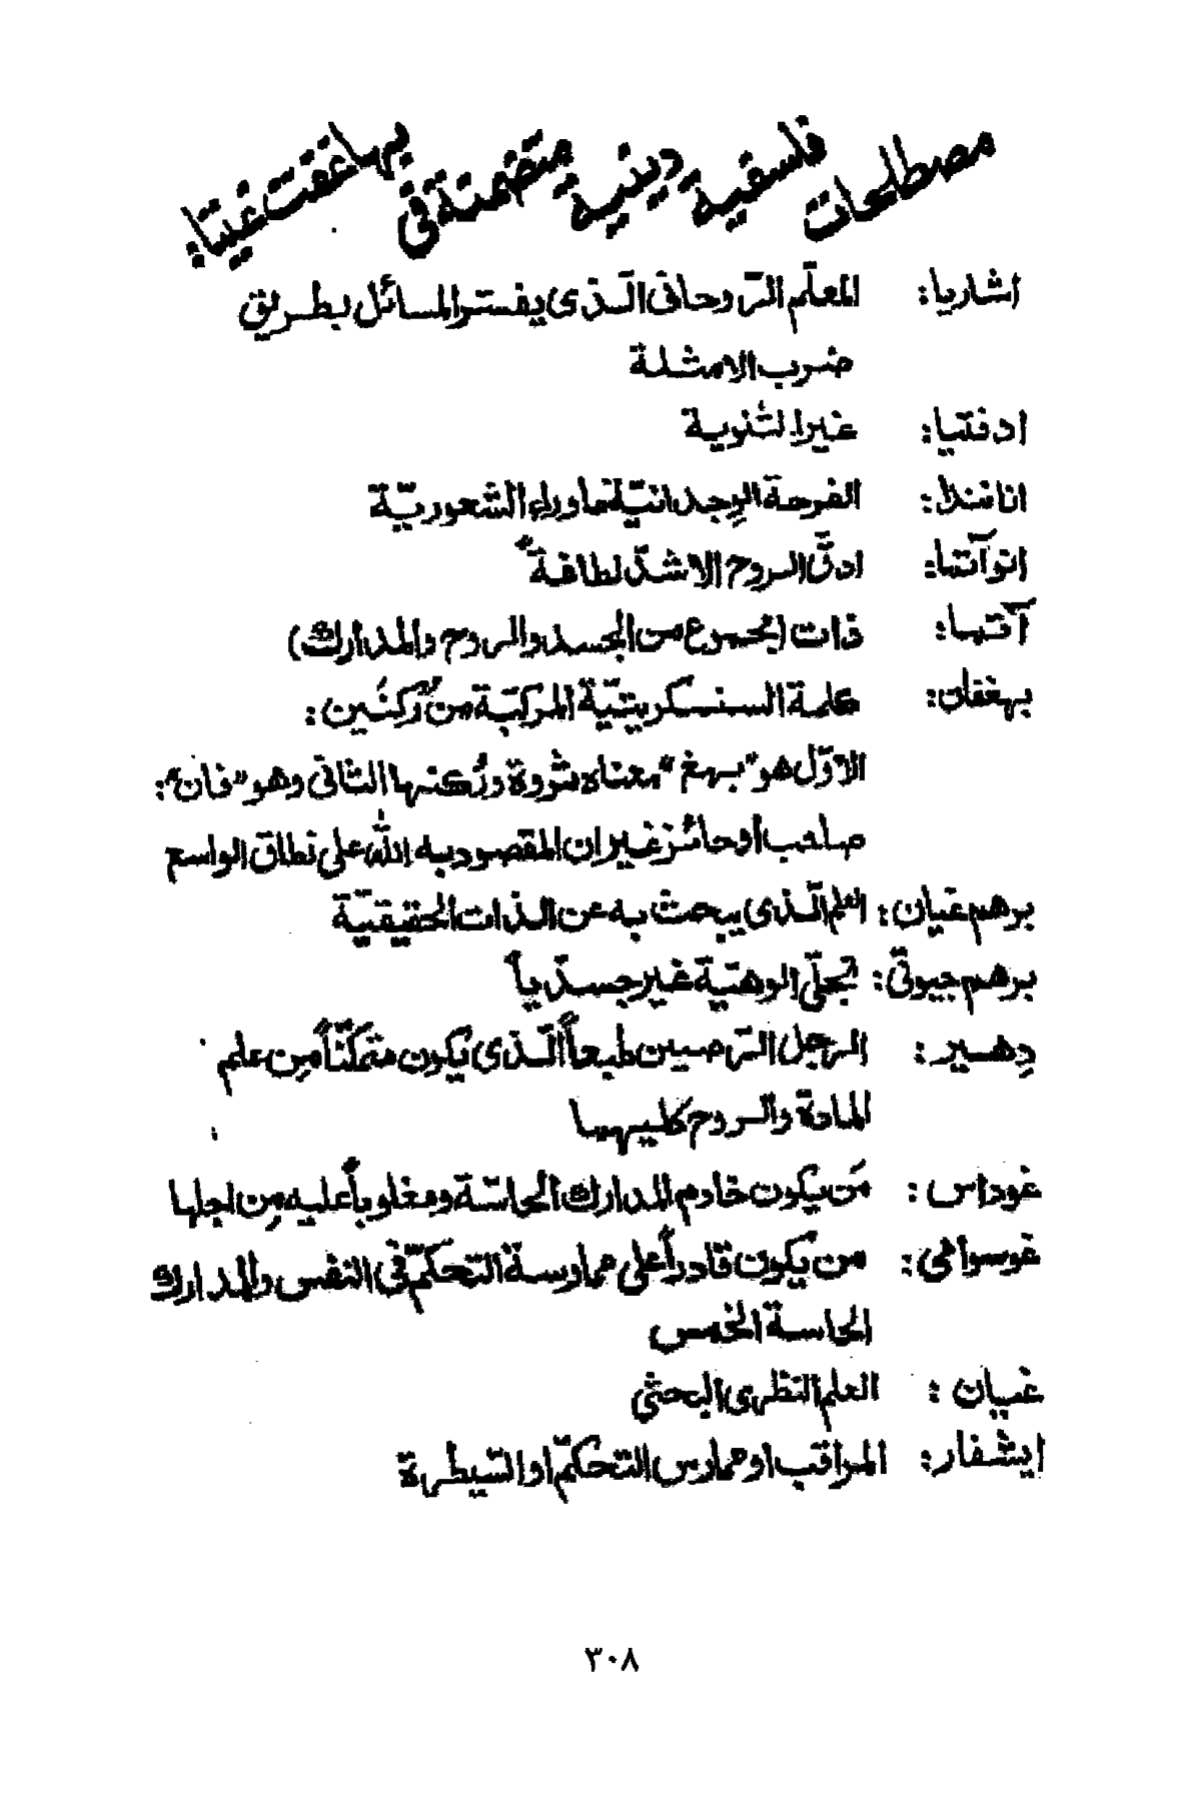 مصطلحات فلسفية دينية متضمنة في بهاغفت غيتا:
اشاريا: المعلّم الرّوحانى الّذى يفسّر المسائل بطريق
ضرب الامثلة
ادفتيا: غير الثنوية
اناندا: الفرحة الوِجدانيّة ماوراء الشعوريّة
انوآتما: ادقّ الروح الاشدّ لطافةً
آتما: ذات (مجموع من الجسد والروح والمدارك)
بهغفان: كلمة السنسكريتيّة المركّبة من رُكنَين:
الاوّل هو "بهغ" معناه ثروة ورُكنها الثانى وهو "فان":
صاحب او حائز غير ان المقصود به الله على نطاق الواسع
برهم غيان: العلم الّذى يبحث به عن الذات الحقيقيّة
برهم جيوتى: تجلّى الوهيّة غير جسدّياً
دِهسير: الرجل الرّصين طبعاً الّذى يكون متمكّناً مِن علم
المادة والروح كليهما
غوداس: مَن يكون خادم المدارك الحاسّة ومغلوباً عليه مِن اجلها
غوسوامى: من يكون قادراً على ممارسة التحكّم فى النفس والمدارك
الحاسة الخمس
غيان: العلم النظرى البحثى
ايشفار: المراقب او ممارس التحكّم او السّيطرة
٣٠٨